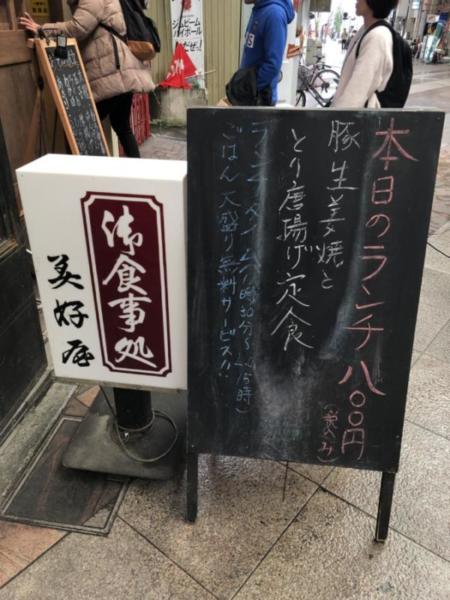 本日のランチ八〇〇円
(税込み)
豚生姜焼と
とり唐揚げ定食
ランチタイム11時30分〜15時
ごはん大盛り無料サービス!!
御食事処
美好屋
ジムビーム
ハイボール
だぜ!